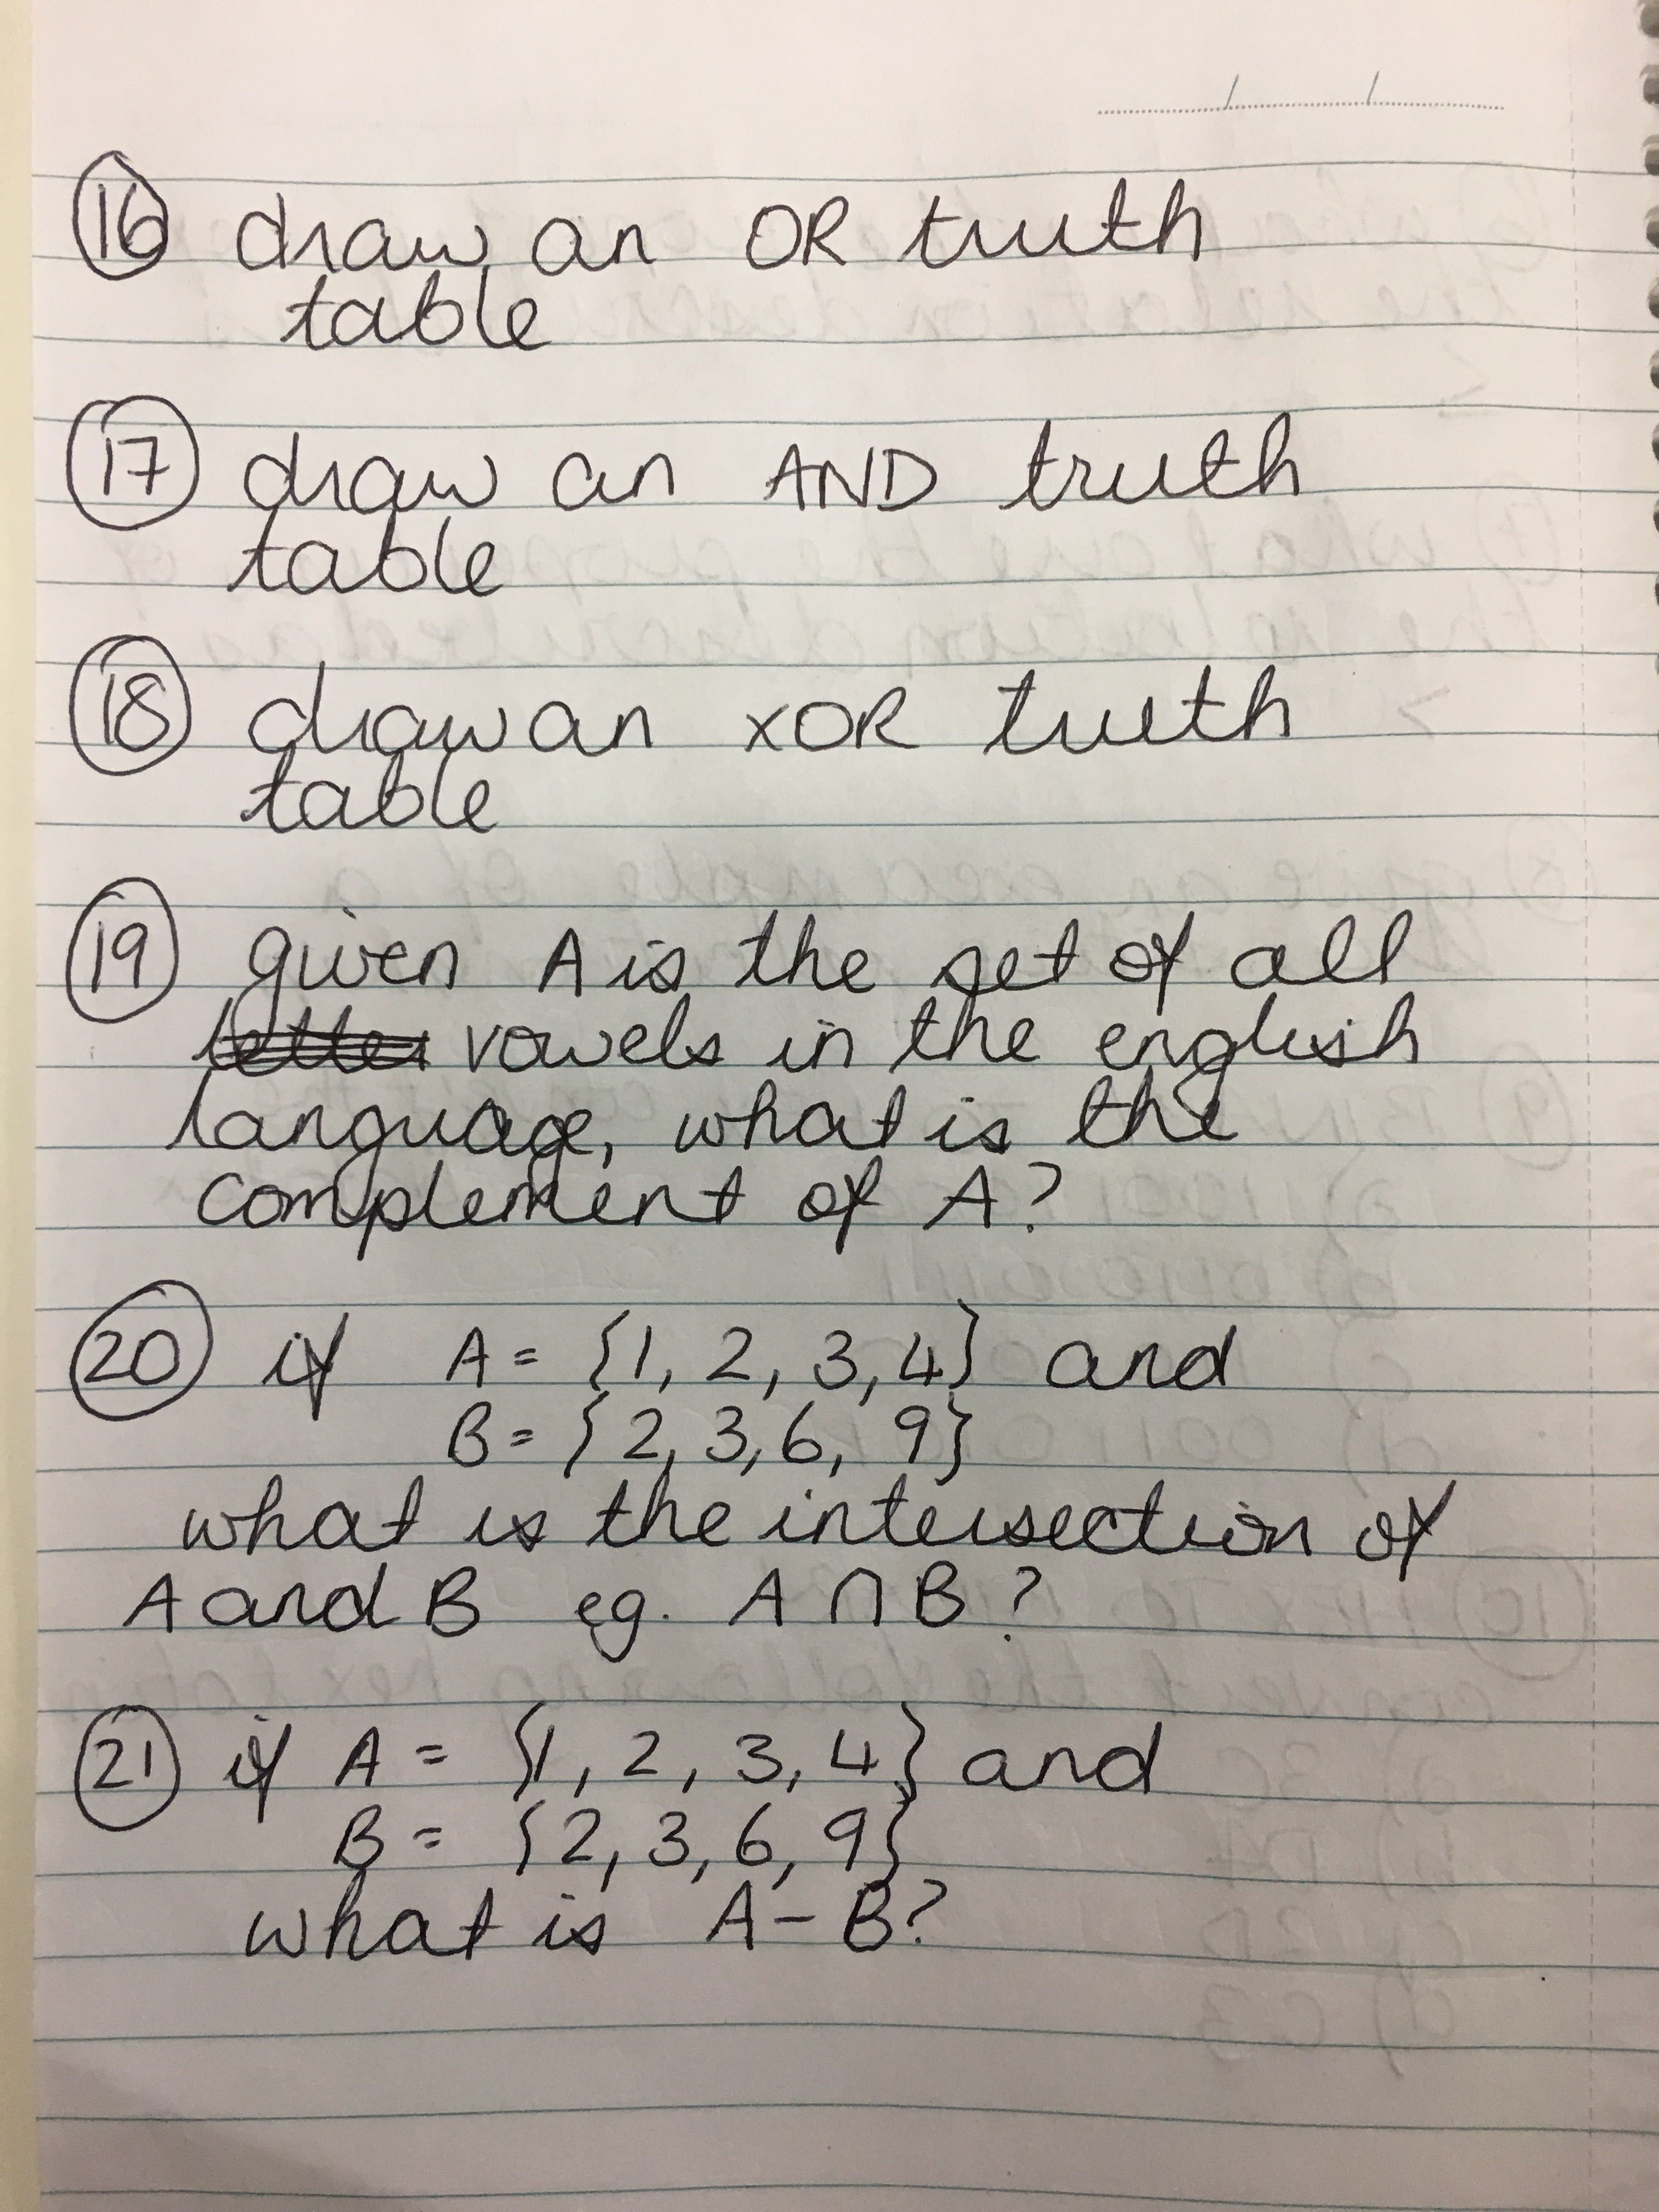 16 draw an OR truth
table
17 draw an AND truth
table
18 draw an XOR truth
table
19 given A is the set of all
letter vowels in the english
language, what is the
complement of A?
20 if A = {1, 2, 3, 4} and
B = {2, 3, 6, 9}
what is the intersection of
A and B eg. A ∩ B?
21 if A = {1, 2, 3, 4} and
B = {2, 3, 6, 9}
what is A - B?